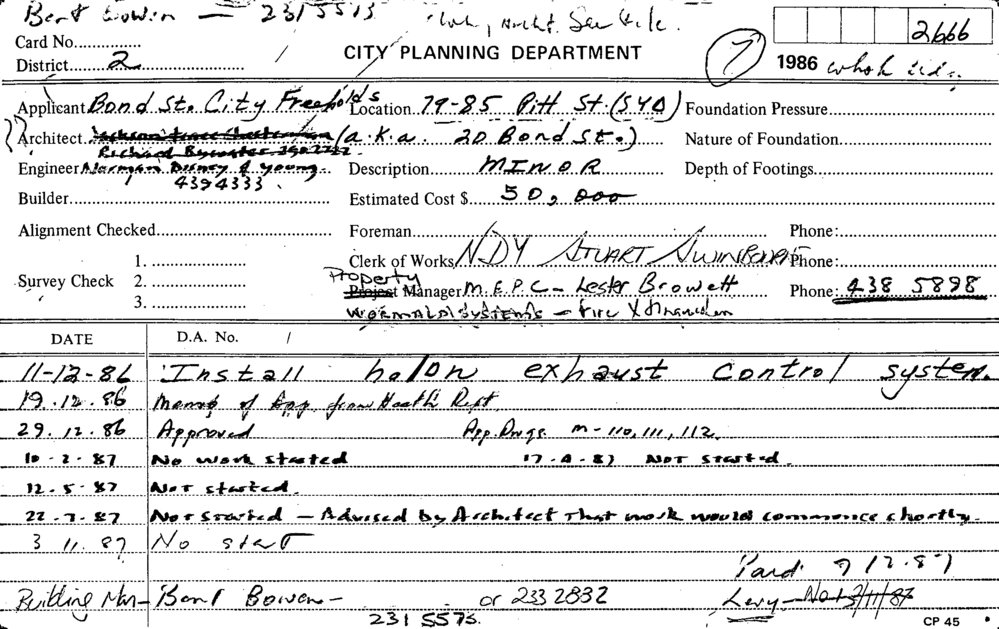 Bert Bowen — 2315573
See file.
Card No.............. CITY PLANNING DEPARTMENT 2666
District.......2....... 1986
Applicant Bond St. City Freeholds Location 79-85 Pitt St. (SYD) Foundation Pressure
Architect (a.k.a. 20 Bond St.) Nature of Foundation
Engineer Norman Disney & Young Description MINOR Depth of Footings
4394333
Builder Estimated Cost $ 50,000
Alignment Checked Foreman Phone:
1. Clerk of Works NDY STUART Phone:
Survey Check 2. Property
Project Manager M.E.P.C — Lester Browett Phone: 438 5898
3. WORMALD SYSTEMS — Fire
DATE D.A. No.
11-12-86 Install halon exhaust control system.
19.12.86 Memo of App. from Health Dept
29.12.86 Approved App. Drwgs. M-110, 111, 112.
10-2-87 No work started 17.4.87 Not started.
12.5.87 Not started.
22-7-87 Not started — Advised by Architect that work would commence shortly.
3 11.87 No start
Paid 9/12.87
Building Man — Bert Bowen — or 2332832 Levy — No 13/11/87
231 5573. CP 45